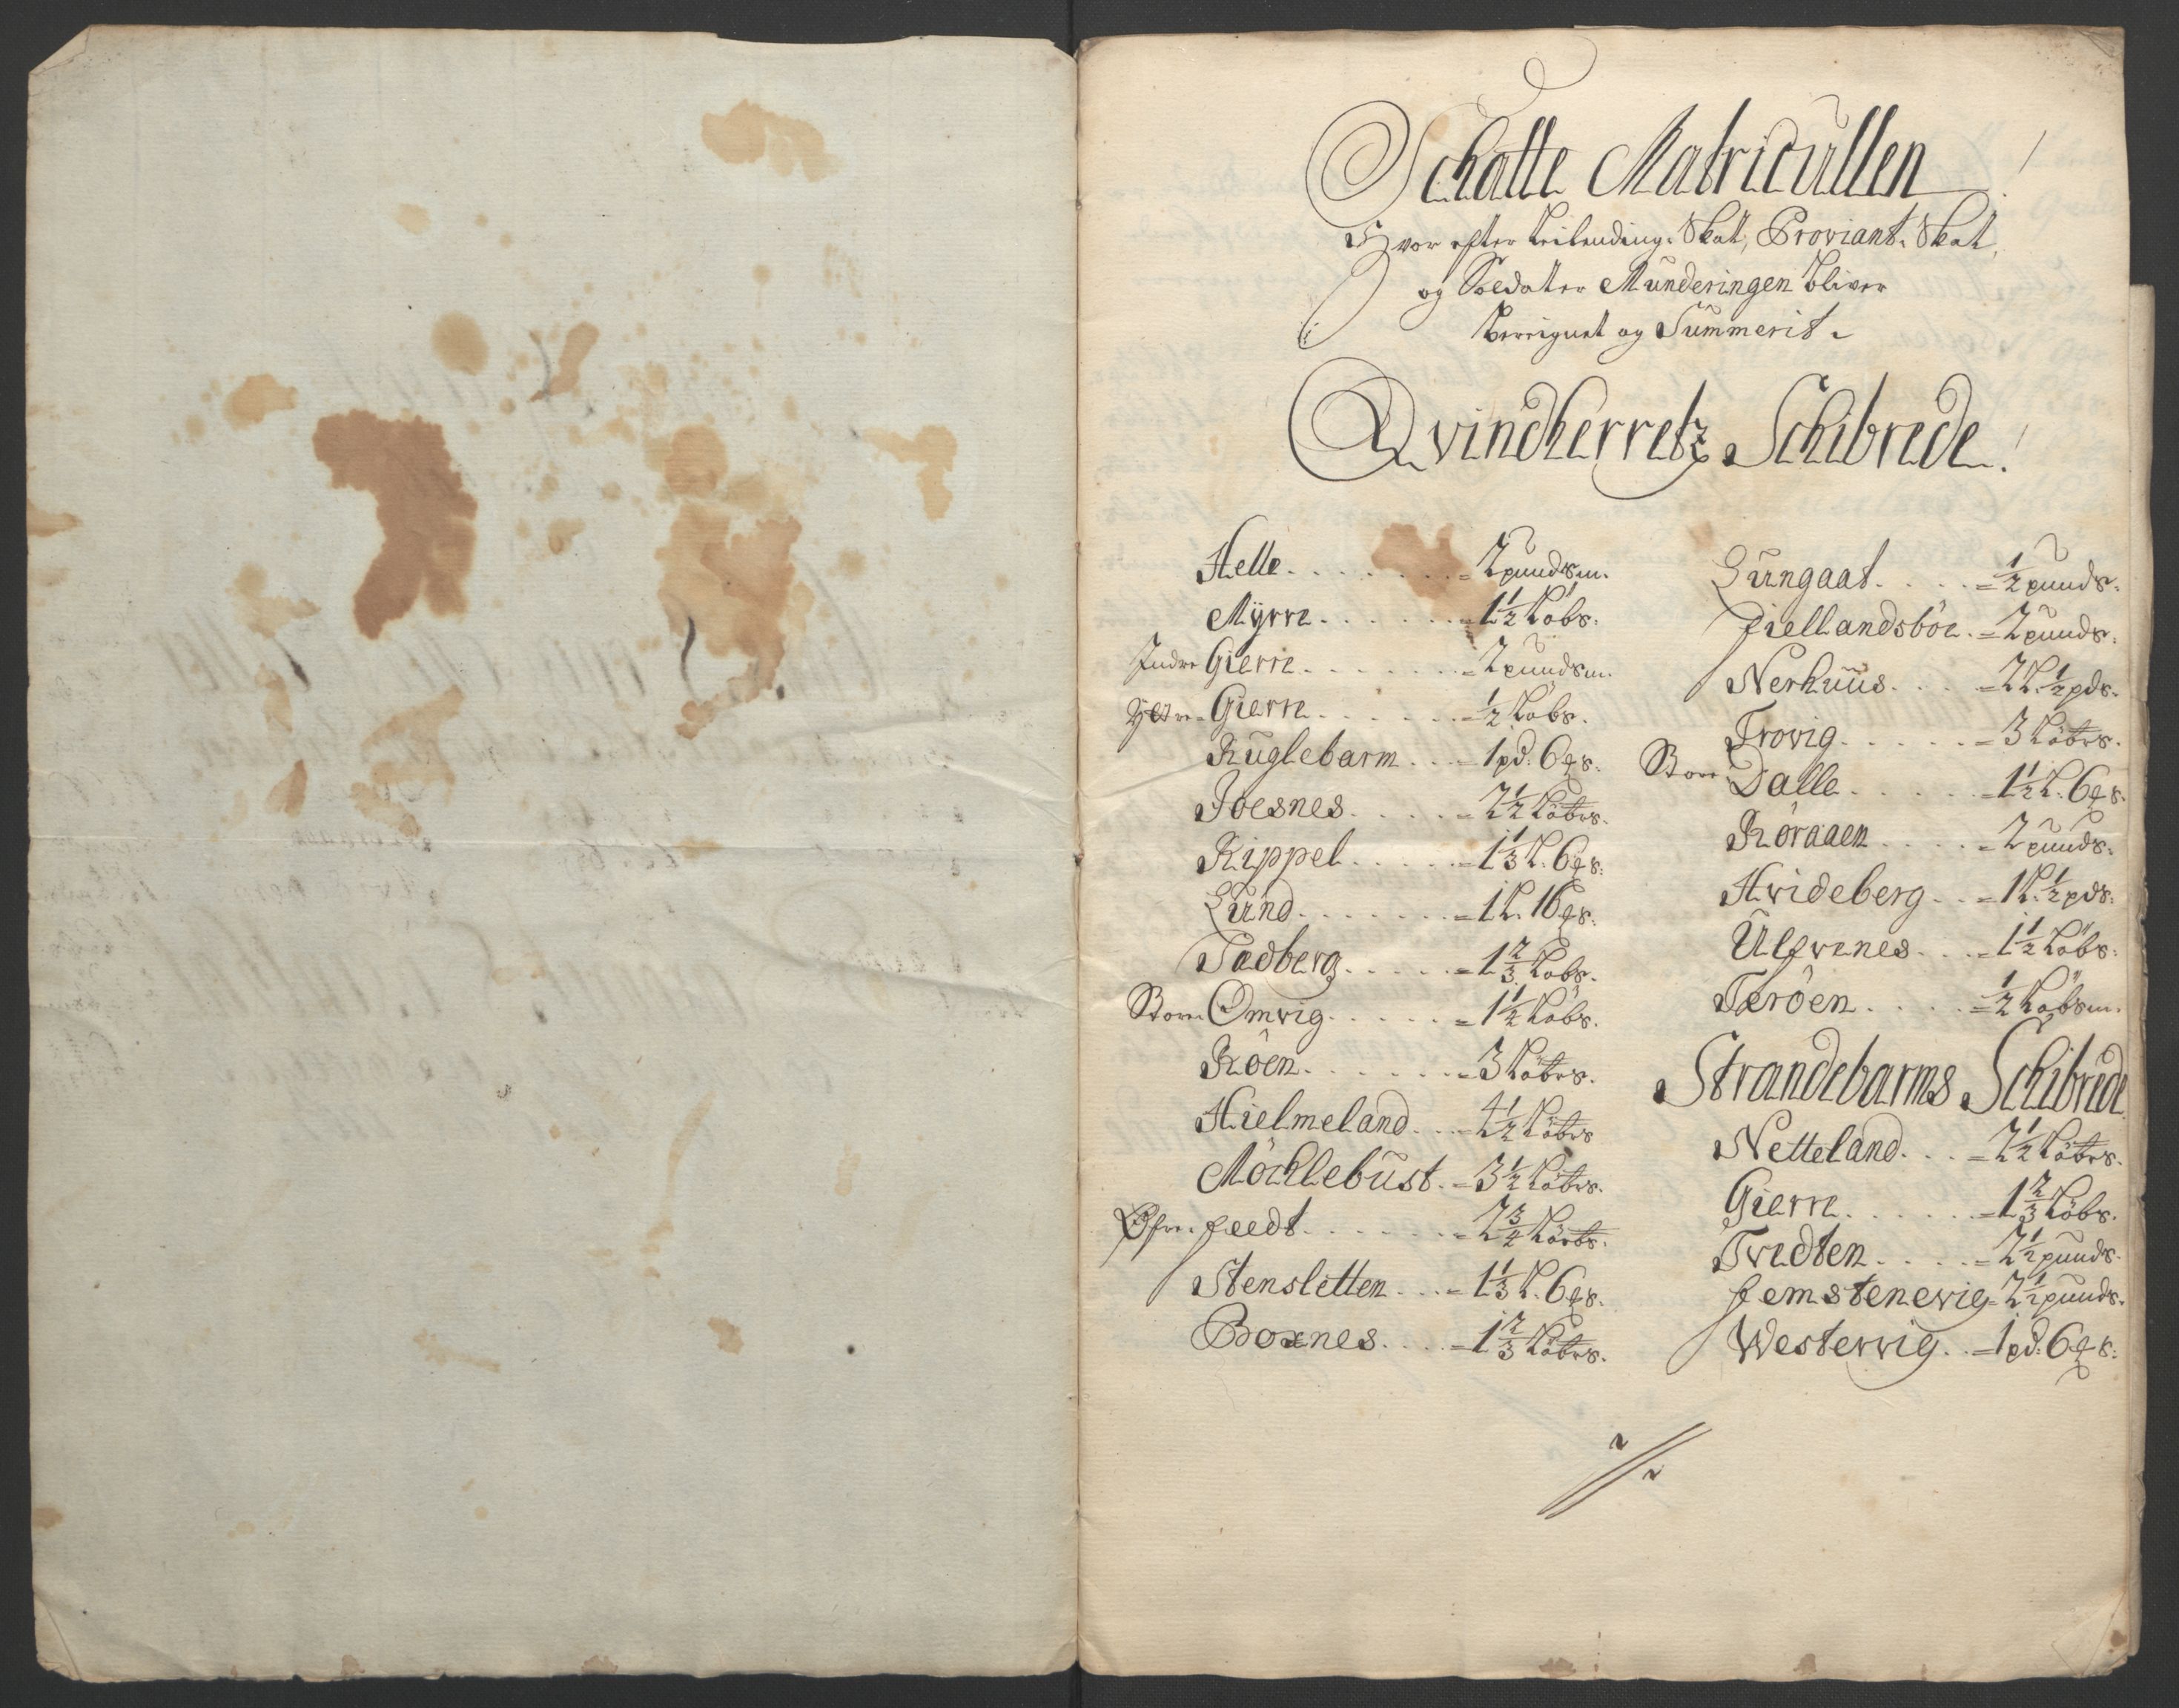 Schatte Matricullen
Hvor efter Leilending Skat, Proviant Skat,
og Soldater Munderingen bliver
berreignet og Summerit
Qvindherretz Schibrede.
Helle . . . . . = 2 pundsm.
Myrre . . . . . = 1½ Löbs:
Indre Gierre . . . . . = 2 pundsm.
Ydtre Gierre . . . . . = ½ Löbs.
Kuglebarm . . . = 1 pd: 6 ß:
Joesnes . . . . = 2½ Löbes.
Rippel . . . . . = 1⅓ L. 6 ß:
Lund . . . . . . = 1 L. 16 ß:
Tadberg . . . . . = 1⅔ Löbs.
Store Omvig . . . . . = 1½ Löbs.
Röen . . . . . . = 3 Löbes.
Hielmeland . . . = 4½ Löbes
Möchlebust . = 3½ Löbes.
Øfre feedt . . . . . = 2¾ Löebs.
Stensletten . . . = 1⅓ L. 6 ß.
Boxnes . . . . = 1⅔ Löbes.
Lungaat . . . . = ½ punds.
Fiellandsböe . = 2 punds:
Nerhuus . . . = 2 L. ½ pds.
Trovig . . . . . = 3 Löbes.
Store Dalle . . . . . = 1½ L. 6 ß.
Röraaen . . . . = 2 punds:
Hvideberg . . = 1 L. ½ pds:
Ulfvenes . . . = 1½ Löbs:
Teröen . . . . = ½ Löbsm.
Strandebarms Schibrede
Netteland . . . = 2½ Löbes.
Gierre . . . . . = 1⅔ Löbs.
Tvedten . . . . = 2½ punds.
femstenevig = 2½ punds.
Westervig . . = 1 pd: 6 ß: